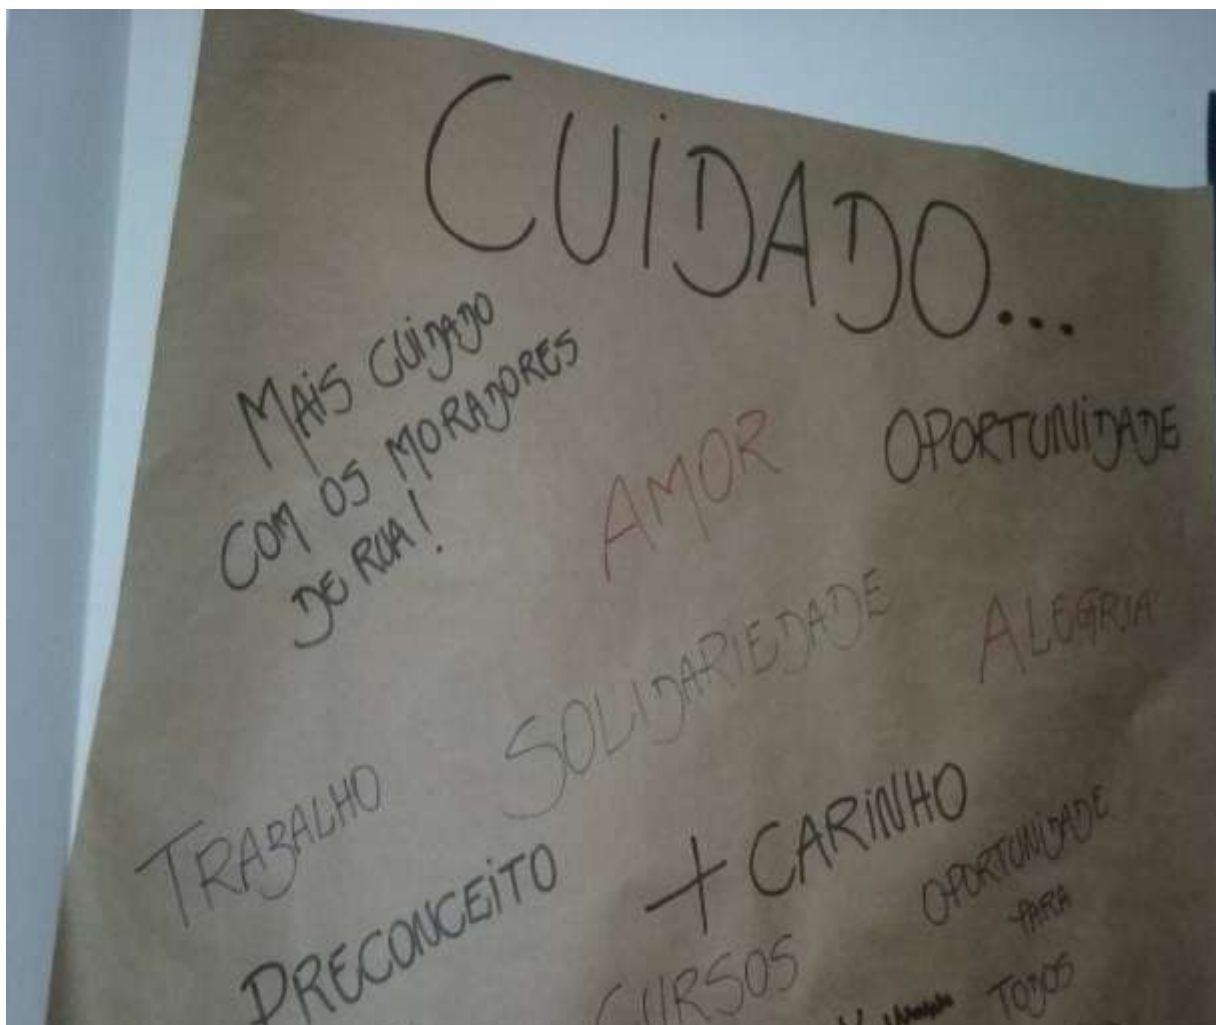 CUIDADO...
MAIS CUIDADO
COM OS MORADORES
DE RUA!
AMOR
OPORTUNIDADE
SOLIDARIEDADE
ALEGRIA
TRABALHO
PRECONCEITO
+ CARINHO
OPORTUNIDADE
PARA
TODOS
CURSOS